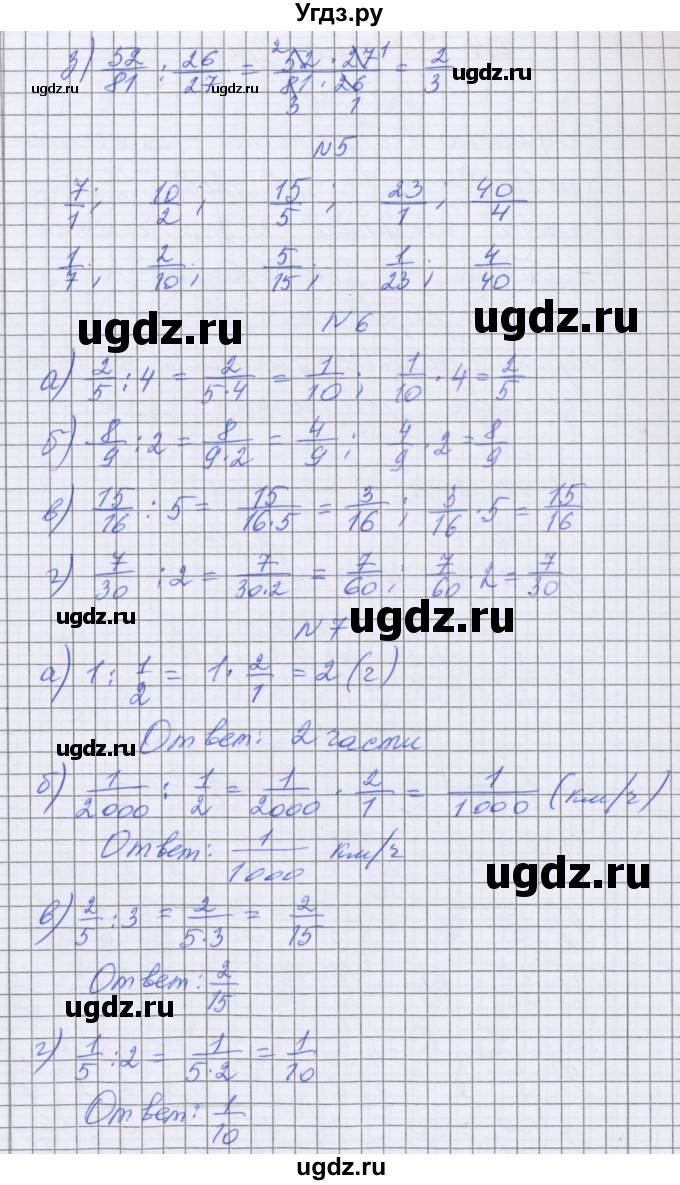 Угдз.ру
з) 52/81 : 26/27 = 52 · 27 / 81 · 26 = 2/3
2 1
3 1
ugdz.ru ugdz.ru ugdz.ru
№5
7/1; 10/2; 15/5; 23/1; 40/4
1/7; 2/10; 5/15; 1/23; 4/40
№6
ugdz.ru ugdz.ru
а) 2/5 : 4 = 2/5·4 = 1/10; 1/10 · 4 = 2/5
б) 8/9 : 2 = 8/9·2 = 4/9; 4/9 · 2 = 8/9
в) 15/16 : 5 = 15/16·5 = 3/16; 3/16 · 5 = 15/16
г) 7/30 : 2 = 7/30·2 = 7/60; 7/60 · 2 = 7/30
ugdz.ru ugdz.ru
№7
а) 1 : 1/2 = 1 · 2/1 = 2 (ч)
Ответ: 2 части
ugdz.ru
б) 1/2000 : 1/2 = 1/2000 · 2/1 = 1/1000 (км/ч)
Ответ: 1/1000 км/ч
ugdz.ru
в) 2/5 : 3 = 2/5·3 = 2/15
Ответ: 2/15
ugdz.ru
г) 1/5 : 2 = 1/5·2 = 1/10
Ответ: 1/10
ugdz.ru